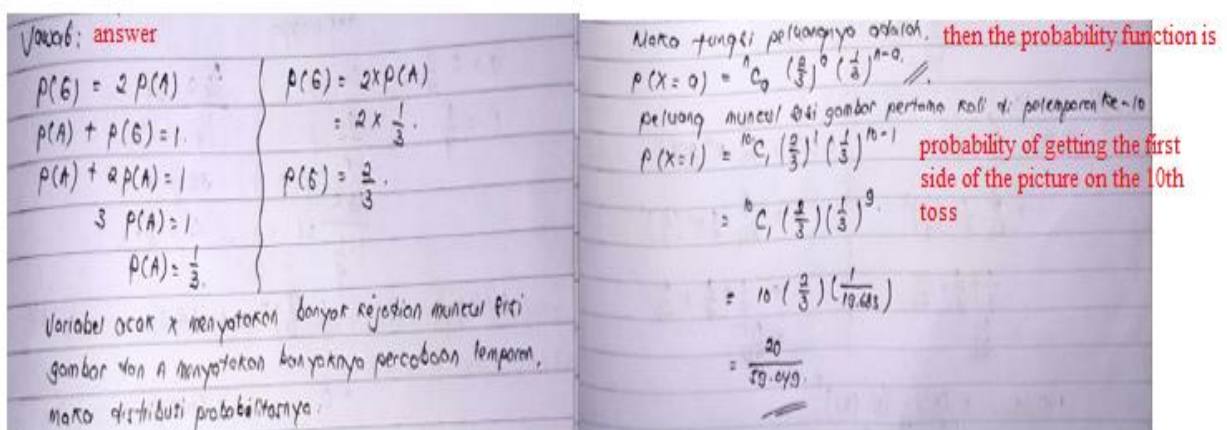 Jawab: answer
P(G) = 2 P(A)
P(A) + P(G) = 1.
P(A) + 2P(A) = 1
3 P(A) = 1
P(A) = 1/3.
P(G) = 2×P(A)
= 2 × 1/3.
P(G) = 2/3.
Variabel acak x menyatakan banyak kejadian muncul sisi
gambar dan n menyatakan banyaknya percobaan lemparan,
maka distribusi probabilitasnya.
Maka fungsi peluangnya adalah. then the probability function is
P(X = a) = ⁿCₐ (2/3)ᵃ (1/3)ⁿ⁻ᵃ.
peluang muncul sisi gambar pertama kali di pelemparan ke-10
P(X=1) = ¹⁰C₁ (2/3)¹ (1/3)¹⁰⁻¹
probability of getting the first
side of the picture on the 10th
toss
= ¹⁰C₁ (2/3) (1/3)⁹.
= 10 (2/3) (1/19.683)
= 20/59.049.